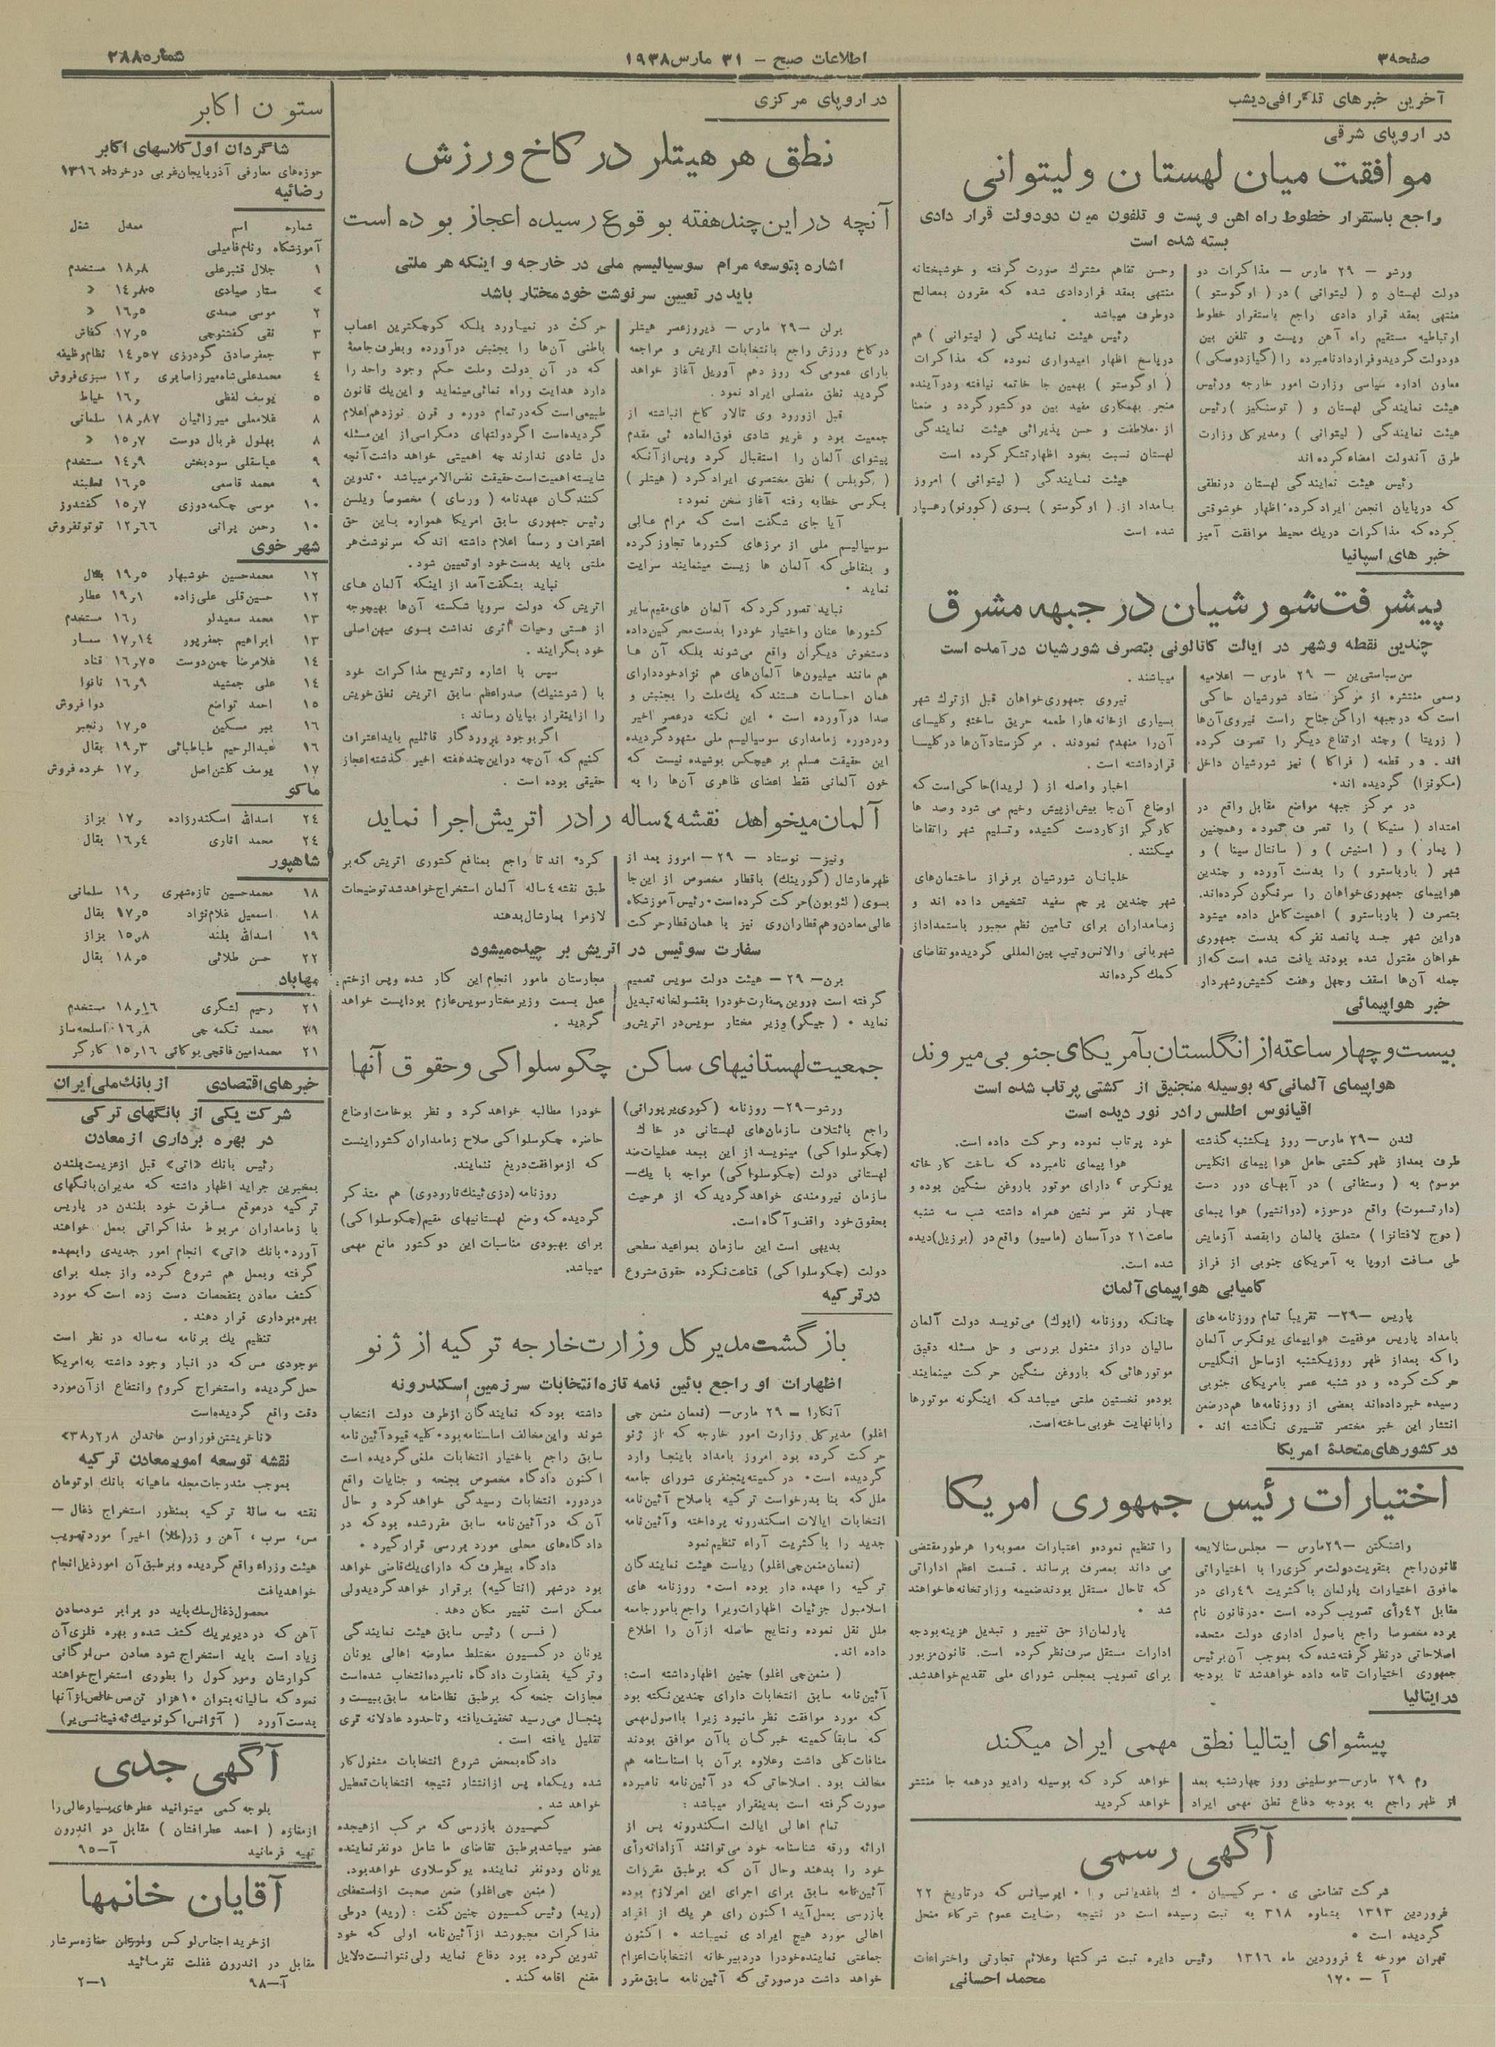 صفحه ۳
اطلاعات صبح – ۳۱ مارس ۱۹۳۸
شماره ۲۸۸۵
آخرین خبرهای تلگرافی دیشب
در اروپای شرقی
موافقت میان لهستان ولیتوانی
راجع باستقرار خطوط راه اهن و پست و تلفون میان دودولت قرار دادی
بسته شده است
ورشو – ۲۹ مارس – مذاکرات دو
دولت لهستان و ( لیتوانی ) در ( اوگوستو )
منتهی بعقد قرار دادی راجع باستقرار خطوط
ارتباطیه مستقیم راه آهن وپست و تلفن بین
دودولت گردید وقراردادنامبرده را (گیازدوسکی)
معاون اداره سیاسی وزارت امور خارجه ورئیس
هیئت نمایندگی لهستان و ( توسنکیز ) رئیس
هیئت نمایندگی ( لیتوانی ) ومدیرکل وزارت
طرق آندولت امضاء کرده اند
رئیس هیئت نمایندگی لهستان درنطقی
که درپایان انجمن ایرادکرده اظهار خوشوقتی
کرده که مذاکرات دریک محیط موافقت آمیز
وحسن تفاهم مشترک صورت گرفته و خوشبختانه
منتهی بعقد قراردادی شده که مقرون بمصالح
دوطرف میباشد
رئیس هیئت نمایندگی ( لیتوانی ) هم
درپاسخ اظهار امیدواری نموده که مذاکرات
( اوگوستو ) بهمین جا خاتمه نیافته ودرآینده
منجر بهمکاری مفید بین دوکشورگردد و ضمنا
از ملاطفت و حسن پذیرائی هیئت نمایندگی
لهستان نسبت بخود اظهارتشکر کرده است
هیئت نمایندگی ( لیتوانی ) امروز
بامداد از ( اوگوستو ) بسوی (کوونو) رهسپار
شده است
خبر های اسپانیا
پیشرفت شورشیان درجبهه مشرق
چندین نقطه وشهر در ایالت کاتالونی بتصرف شورشیان درآمده است
سن سباستین – ۲۹ مارس – اعلامیه
رسمی منتشره از مرکز ستاد شورشیان حاکی
است که درجبهه اراگن جناح راست نیروی آن‌ها
( زریتا ) وچند ارتفاع دیگر را تصرف کرده
اند . در قطعه ( فراکا ) نیز شورشیان داخل
(مکونزا) گردیده اند.
در مرکز جبهه مواضع مقابل واقع در
امتداد ( سنیکا ) را تصرف نموده وهمچنین
( پمار ) و ( استیش ) و ( سانتال سینا ) و
شهر ( بارباسترو ) را بدست آورده و چندین
هواپیمای جمهوری‌خواهان را سرنگون کرده‌اند.
بتصرف ( بارباسترو ) اهمیت کامل داده میشود
دراین شهر جسد پانصد نفر که بدست جمهوری
خواهان مقتول شده بودند یافت شده است که از
جمله آن‌ها اسقف وچهل وهفت کشیش وشهردار
میباشند .
نیروی جمهوری‌خواهان قبل از ترک شهر
بسیاری ازخانه‌هارا طعمه حریق ساخته وکلیسای
آن‌را منهدم نمودند . مرکزستادآن‌ها درکلیسا
قرارداشته است .
اخبار واصله از ( لریدا ) حاکی است که
اوضاع آن‌جا بیش ازپیش وخیم می شود وصد ها
کارگر ازکاردست کشیده وتسلیم شهر راتقاضا
میکنند .
خلبانان شورشیان برفراز ساختمان‌های
شهر چندین پرچم سفید تشخیص داده اند و
زمامداران برای تامین نظم مجبور باستمداداز
شهربانی والانس وتیپ بین‌المللی گردیده وتقاضای
کمک کرده‌اند
خبر هواپیمائی
بیست وچهار ساعته از انگلستان بآمریکای جنوبی میروند
هواپیمای آلمانی که بوسیله منجنیق از کشتی پرتاب شده است
اقیانوس اطلس رادر نور دیده است
لندن – ۲۹ مارس – روز یکشنبه گذشته
طرف بعداز ظهر کشتی حامل هواپیمای انگلیس
موسوم به ( وستفانی ) در آبهای دور دست
(دارتسموت) واقع درحوزه (دوانشیر) هوا پیمای
(دوج لافتانزا ) متعلق بالمان رابقصد آزمایش
طی مسافت اروپا به آمریکای جنوبی از فراز
خود پرتاب نموده وحرکت داده است.
هواپیمای نامبرده که ساخت کارخانه
یونکرس ، دارای موتور باروغن سنگین بوده و
چهار نفر سرنشین همراه داشته شب سه شنبه
ساعت ۲۱ درآسمان (ماسیو) واقع در (برزیل)دیده
شده است.
کامیابی هواپیمای آلمان
پاریس – ۲۹ – تقریباً تمام روزنامه‌های
بامداد پاریس موفقیت هواپیمای یونکرس آلمان
را که بعداز ظهر روزیکشنبه ازساحل انگلیس
حرکت کرده و دو شنبه عصر بامریکای جنوبی
رسیده خبر داده‌اند بعضی از روزنامه‌ها هم درضمن
انتشار این خبر مختصر تفسیری نگاشته اند .
چنانکه روزنامه (اپوک) می‌نویسد دولت آلمان
سالیان دراز مشغول بررسی و حل مسئله دقیق
موتورهائی که باروغن سنگین حرکت مینمایند
بوده و نخستین ملتی میباشد که اینگونه موتورها
رابانهایت خوبی ساخته است.
درکشورهای متحدهٔ امریکا
اختیارات رئیس جمهوری امریکا
واشنگتن – ۲۹ مارس – مجلس سنا لایحه
قانون‌راجع بتقویت دولت مرکزی را با اختیاراتی
مافوق اختیارات پارلمان باکثریت ۴۹ رای در
مقابل ۴۲ رأی تصویب کرده است . در قانون نام
برده مخصوصا راجع باصول اداری دولت متحده
اصلاحاتی درنظر گرفته شده که بموجب آن رئیس
جمهوری اختیارات تامه داده خواهد شد تا بودجه
را تنظیم نموده و اعتبارات مصوبه را هرطور مقتضی
می داند بمصرف برساند . قسمت اعظم اداراتی
که تاحال مستقل بودند ضمیمه وزارتخانه هاخواهند
شد .
پارلمان از حق تغییر و تبدیل هزینه بودجه
ادارات مستقل صرف‌نظر کرده است. قانون مزبور
برای تصویب بمجلس شورای ملی تقدیم خواهدشد.
درایتالیا
پیشوای ایتالیا نطق مهمی ایراد میکند
رم ۲۹ مارس – موسلینی روز چهارشنبه بعد
از ظهر راجع به بودجه دفاع نطق مهمی ایراد
خواهد کرد که بوسیله رادیو درهمه جا منتشر
خواهد گردید
آگهی رسمی
شرکت تضامنی ی . سرکیسیان . ک باغدیانس و ا . ابوسیانس که در تاریخ ۲۲
فروردین ۱۳۱۳ بشماره ۳۱۸ به ثبت رسیده است در نتیجه رضایت عموم شرکاء منحل
گردیده است .
تهران مورخه ٤ فروردین ماه ۱۳۱۶ رئیس دایره ثبت شرکتها وعلائم تجارتی واختراعات
آ – ۱۲۰ محمد احسانی
در اروپای مرکزی
نطق هر هیتلر در کاخ ورزش
آنچه در این چند هفته بوقوع رسیده اعجاز بوده است
اشاره بتوسعه مرام سوسیالیسم ملی در خارجه و اینکه هر ملتی
باید در تعیین سرنوشت خود مختار باشد
برلن – ۲۹ مارس – دیروزعصر هیتلر
درکاخ ورزش راجع بانتخابات اتریش و مراجعه
بارای عمومی که روز دهم آوریل آغاز خواهد
گردید نطق مفصلی ایراد نمود.
قبل ازورود وی تالار کاخ انباشته از
جمعیت بود و غریو شادی فوق‌العاده ئی مقدم
پیشوای آلمان را استقبال کرد وپس ازآنکه
( گوبلس ) نطق مختصری ایرادکرد ( هیتلر )
بکرسی خطابه رفته آغاز سخن نمود:
آیا جای شگفت است که مرام عالی
سوسیالیسم ملی از مرزهای کشورما تجاوز کرده
و بنقاطی که آلمان ها زیست مینمایند سرایت
نماید .
نباید تصور کرد که آلمان های مقیم سایر
کشورها عنان واختیار خودرا بدست محرکین داده
دستخوش دیگران واقع می‌شوند بلکه آن ها
هم مانند میلیون‌ها آلمان‌های هم نژاد خوددارای
همان احساسات هستند که یک‌ملت را بجنبش و
صدا درآورده است . این نکته درعصر اخیر
ودردوره زمامداری سوسیالیسم ملی مشهود گردیده
این حقیقت مسلم بر هیچکس پوشیده نیست که
خون آلمانی فقط اعضای ظاهری آن‌ها را به
حرکت در نمیاورد بلکه کوچکترین اعصاب
باطنی آن‌ها را بجنبش درآورده وبطرف جامعهٔ
که در آن دولت وملت حکم وجود واحد را
دارد هدایت وراه نمائی مینماید و این یک قانون
طبیعی است که درتمام دوره و قرن نوزدهم اعلام
گردیده است اگردولتهای دمکراسی از این مسئله
دل شادی ندارند چه اهمیتی خواهد داشت آنچه
شایسته اهمیت است حقیقت نفس‌الامر میباشد . تدوین
کنندگان عهدنامه ( ورسای ) مخصوصا ویلسن
رئیس جمهوری سابق امریکا همواره باین حق
اعتراف و رسماً اعلام داشته اند که سرنوشت هر
ملتی باید بدست خود او تعیین شود.
نباید بشگفت آمد از اینکه آلمان های
اتریش که دولت سروپا شکسته آن‌ها بهیچوجه
از هستی وحیات اثری نداشت بسوی میهن اصلی
خود بگرایند .
سپس با اشاره وتشریح مذاکرات خود
با ( شوشنیک) صدراعظم سابق اتریش نطق خویش
را ازاینقرار بپایان رساند:
اگر بوجود پروردگار قائلیم باید اعتراف
کنیم که آن‌چه دراین‌چند هفته اخیر گذشته اعجاز
حقیقی بوده است .
آلمان میخواهد نقشه ٤ ساله را در اتریش اجرا نماید
ونیز – نوستاد – ۲۹ – امروز بعد از
ظهر مارشال (گورینک) باقطار مخصوص از این‌جا
بسوی (لئوبون) حرکت کرده است . رئیس آموزشگاه
عالی معادن وهم قطاران وی نیز با همان قطار حرکت
کرده اند تا راجع بمنافع کشوری اتریش که بر
طبق نقشه ٤ ساله آلمان استخراج خواهد شد توضیحات
لازمرا بمارشال بدهند
سفارت سوئیس در اتریش بر چیده میشود
برن – ۲۹ – هیئت دولت سویس تصمیم
گرفته است دروین سفارت خودرا بقنسولخانه تبدیل
نماید . (جیگر) وزیر مختار سویس در اتریش و
مجارستان مامور انجام این کار شده وپس ازختم
عمل بسمت وزیر مختار سویس عازم بوداپست خواهد
گردید .
جمعیت لهستانیهای ساکن چکوسلواکی وحقوق آنها
ورشو – ۲۹ – روزنامه (کوری‌یر پورانی)
راجع بائتلاف سازمان‌های لهستانی در خاک
(چکوسلواکی) مینویسد از این ببعد عملیات ضد
لهستانی دولت (چکوسلواکی) مواجه با یک –
سازمان نیرومندی خواهد گردید که از هرحیث
بحقوق خود واقف و آگاه است.
بدیهی است این سازمان بمواعید سطحی
دولت (چکوسلواکی) قناعت نکرده حقوق مشروع
خودرا مطالبه خواهد کرد و نظر بوخامت اوضاع
حاضره چکوسلواکی صلاح زمامداران کشور اینست
که ازموافقت دریغ ننمایند.
روزنامه (دزی ئینک نارودوی) هم متذکر
گردیده که وضع لهستانیهای مقیم (چکوسلواکی)
برای بهبودی مناسبات این دوکشور مانع مهمی
میباشد.
درترکیه
بازگشت مدیرکل وزارت خارجه ترکیه از ژنو
اظهارات او راجع بائین نامه تازه انتخابات سرزمین اسکندرونه
آنکارا – ۲۹ مارس – (نعمان منمن جی
اغلو) مدیرکل وزارت امور خارجه که از ژنو
حرکت کرده بود امروز بامداد باینجا وارد
گردیده است . درکمیته پنجنفری شورای جامعه
ملل که بنا بدرخواست ترکیه باصلاح آئین‌نامه
انتخابات ایالات اسکندرونه پرداخته وآئین‌نامه
جدید را باکثریت آراء تنظیم نمود
(نعمان منمن‌جی اغلو) ریاست هیئت نمایندگان
ترکیه را عهده دار بوده است . روزنامه های
اسلامبول جزئیات اظهارات ویرا راجع بامور جامعه
ملل نقل نموده ونتایج حاصله ازآن را اطلاع
داده اند.
( منمن‌جی اغلو) چنین اظهارداشته است:
آئین نامه سابق انتخابات دارای چندین نکته بود
که مورد موافقت نظر مانبود زیرا بااصول مهمی
که سابقا کمیته خبرگان باآن موافق بودند
منافات کلی داشت وعلاوه برآن با اساسنامه هم
مخالف بود . اصلاحاتی که در آئین نامه نامبرده
صورت گرفته است بدینقرار میباشد:
تمام اهالی ایالت اسکندرونه پس از
ارائه ورقه شناسنامه خود می‌توانند آزادانه رأی
خود را بدهند وحال آن که برطبق مقررات
آئین‌نامه سابق برای اجرای این امرلازم بوده
بازرسی بعمل آید اکنون رای هر یک از افراد
اهالی مورد هیچ ایرادی نمیباشد . اکنون
جماعتی نماینده خودرا دردبیر خانه انتخابات اعزام
خواهد داشت درصورتی که آئین‌نامه سابق مقرر
داشته بود که نمایندگان ازطرف دولت انتخاب
شوند واین مخالف اساسنامه بود . کلیه قیود آئین‌نامه
سابق راجع باختیار انتخابات ملغی گردیده است
اکنون دادگاه مخصوص بجنحه و جنایات واقع
دردوره انتخابات رسیدگی خواهد کرد و حال
آن که درآئین‌نامه سابق مقررشده بودکه در
دادگاه‌های محلی مورد بررسی قرار گیرد .
دادگاه بیطرف که دارای یک‌قاضی خواهد
بود درشهر (انتاکیه) برقرار خواهد گردید ولی
ممکن است تغییر مکان دهد .
( فسس ) رئیس سابق هیئت نمایندگی
یونان درکمیسیون مختلط معاوضه اهالی یونان
وترکیه بقضاوت دادگاه نامبرده انتخاب شده است
مجازات جنحه که برطبق نظامنامه سابق ببیست و
پنجسال می‌رسید تخفیف یافته و تاحدود عادلانه تری
تقلیل یافته است .
دادگاه بمحض شروع انتخابات مشغول کار
شده ویکماه پس ازانتشار نتیجه انتخابات تعطیل
خواهد شد .
کمیسیون بازرسی که مرکب ازهیجده
عضو میباشد برطبق تقاضای ما شامل دونفر نماینده
یونان ودونفر نماینده یوگوسلاوی خواهد بود.
( منمن جی اغلو) ضمن صحبت ازاستعفای
(رید) رئیس کمسیون چنین گفت: (رید) درطی
مذاکرات مجبورشد ازآئین‌نامه اولی که خود
تدوین کرده بود دفاع نماید ولی نتوانست دلایل
مقنع اقامه کند .
ستون اکابر
شاگردان اول کلاسهای اکابر
حوزه‌های معارفی آذربایجان غربی در خرداد ۱۳۱۶
رضائیه
شماره اسم معدل شغل
آموزشگاه ونام فامیلی
۱ جلال قنبرعلی ۱۸٫۸ مستخدم
» ستار صیادی ۱۴٫۸۵ »
۲ موسی صمدی ۱۶٫۵ »
۳ تقی کفشنوچی ۱۷٫۵ کفاش
۳ جعفرصادق گودرزی ۱۴٫۵۷ نظام‌وظیفه
٤ محمدعلی شاه میرزا صابری ۱۲٫ سبزی‌فروش
۵ یوسف لفظی ۱۶٫ خیاط
۸ غلامعلی میرزائیان ۱۸٫۸۷ سلمانی
۸ بهلول غربال دوست ۱۵٫۷ »
۹ عباسقلی سودبخش ۱۴٫۹ مستخدم
۹ محمد قاسمی ۱۶٫۵
۱۰ موسی چکمه‌دوزی ۱۵٫۷ کفشدوز
۱۰ رحمن یرانی ۱۲٫۶۶ توتونفروش
شهر خوی
۱۲ محمدحسین خوشبهار ۱۹٫۵ بقال
۱۲ حسین قلی علی‌زاده ۱۹٫۱ عطار
۱۳ محمد سعیدلو ۱۶٫ مستخدم
۱۳ ابراهیم جعفرپور ۱۷٫۱۴ سمسار
۱۴ غلامرضا چمن‌دوست ۱۶٫۷۵ قناد
۱۴ علی جمشید ۱۶٫۹ نانوا
۱۵ احمد تواضع دوا فروش
۱۶ ببر مسکین ۱۷٫۵ رنجبر
۱۶ عبدالرحیم طباطبائی ۱۹٫۳ بقال
۱۷ یوسف کلتن‌اصل ۱۷٫ خرده فروش
ماکو
۲٤ اسدالله اسکندرزاده ۱۷٫ بزاز
۲٤ محمد انباری ۱۶٫٤ بقال
شاهپور
۱۸ محمدحسین تازه‌شهری ۱۹٫ سلمانی
۱۸ اسمعیل غلام‌نژاد ۱۷٫۵ بقال
۱۹ اسدالله بلند ۱۵٫۸ بزاز
۲۲ حسن طلائی ۱۸٫۵ بقال
مهاباد
۲۱ رحیم لشگری ۱۸٫۱۶ مستخدم
۲۹ محمد تکمه چی ۱۶٫۸ اسلحه‌ساز
۲۱ محمدامین قاقچی بوکانی ۱۵٫۱۶ کارگر
خبرهای اقتصادی از بانک ملی ایران
شرکت یکی از بانگهای ترکی
در بهره برداری ازمعادن
رئیس بانک «اتی» قبل ازعزیمت بلندن
بمخبرین جراید اظهار داشته که مدیران بانگهای
ترکیه درموقع مسافرت خود بلندن در پاریس
با زمامداران مربوط مذاکراتی بعمل خواهند
آورد . بانک «اتی» انجام امور جدیدی رابعهده
گرفته وبعمل هم شروع کرده واز جمله برای
کشف معادن بتفحصات دست زده است که مورد
بهره‌برداری قرار دهند .
تنظیم یک برنامه سه ساله در نظر است
موجودی مس که در انبار وجود داشته به امریکا
حمل گردیده واستخراج کروم وانتفاع ازآن مورد
دقت واقع گردیده است
«ناخریشتن فور اوسن هاندلن ۳۸٫۲٫۸»
نقشه توسعه امور معادن ترکیه
بموجب مندرجات مجله ماهیانه بانک اوتومان
نقشه سه سالهٔ ترکیه بمنظور استخراج ذغال –
مس، سرب ، آهن و زر(طلا) اخیراً موردتصویب
هیئت وزراء واقع گردیده وبرطبق آن امور ذیل انجام
خواهدیافت
محصول ذغال‌سنک باید دو برابر شود معادن
آهن که در دیویریک کشف شده و بهره فلزی آن
زیاد است باید استخراج شود معادن مس لوگانی
کوارشان ومورکول را بطوری استخراج خواهند
نمود که سالیانه بتوان ۱۰ هزار تن مس خالص از آنها
بدست آورد ( آژانس اکونومیک ئه فینانسی‌یر)
آگهی جدی
باوجه کمی میتوانید عطرهای بسیارعالی را
ازمغازه ( احمد عطرافشان ) مقابل در اندرون
تهیه فرمائید آ – ۹۵
آقایان خانمها
ازخرید اجناس لوکس وارزان مغازه سرشار
مقابل در اندرون غفلت نفرمائید
آ – ۹۸ ۱ – ۲